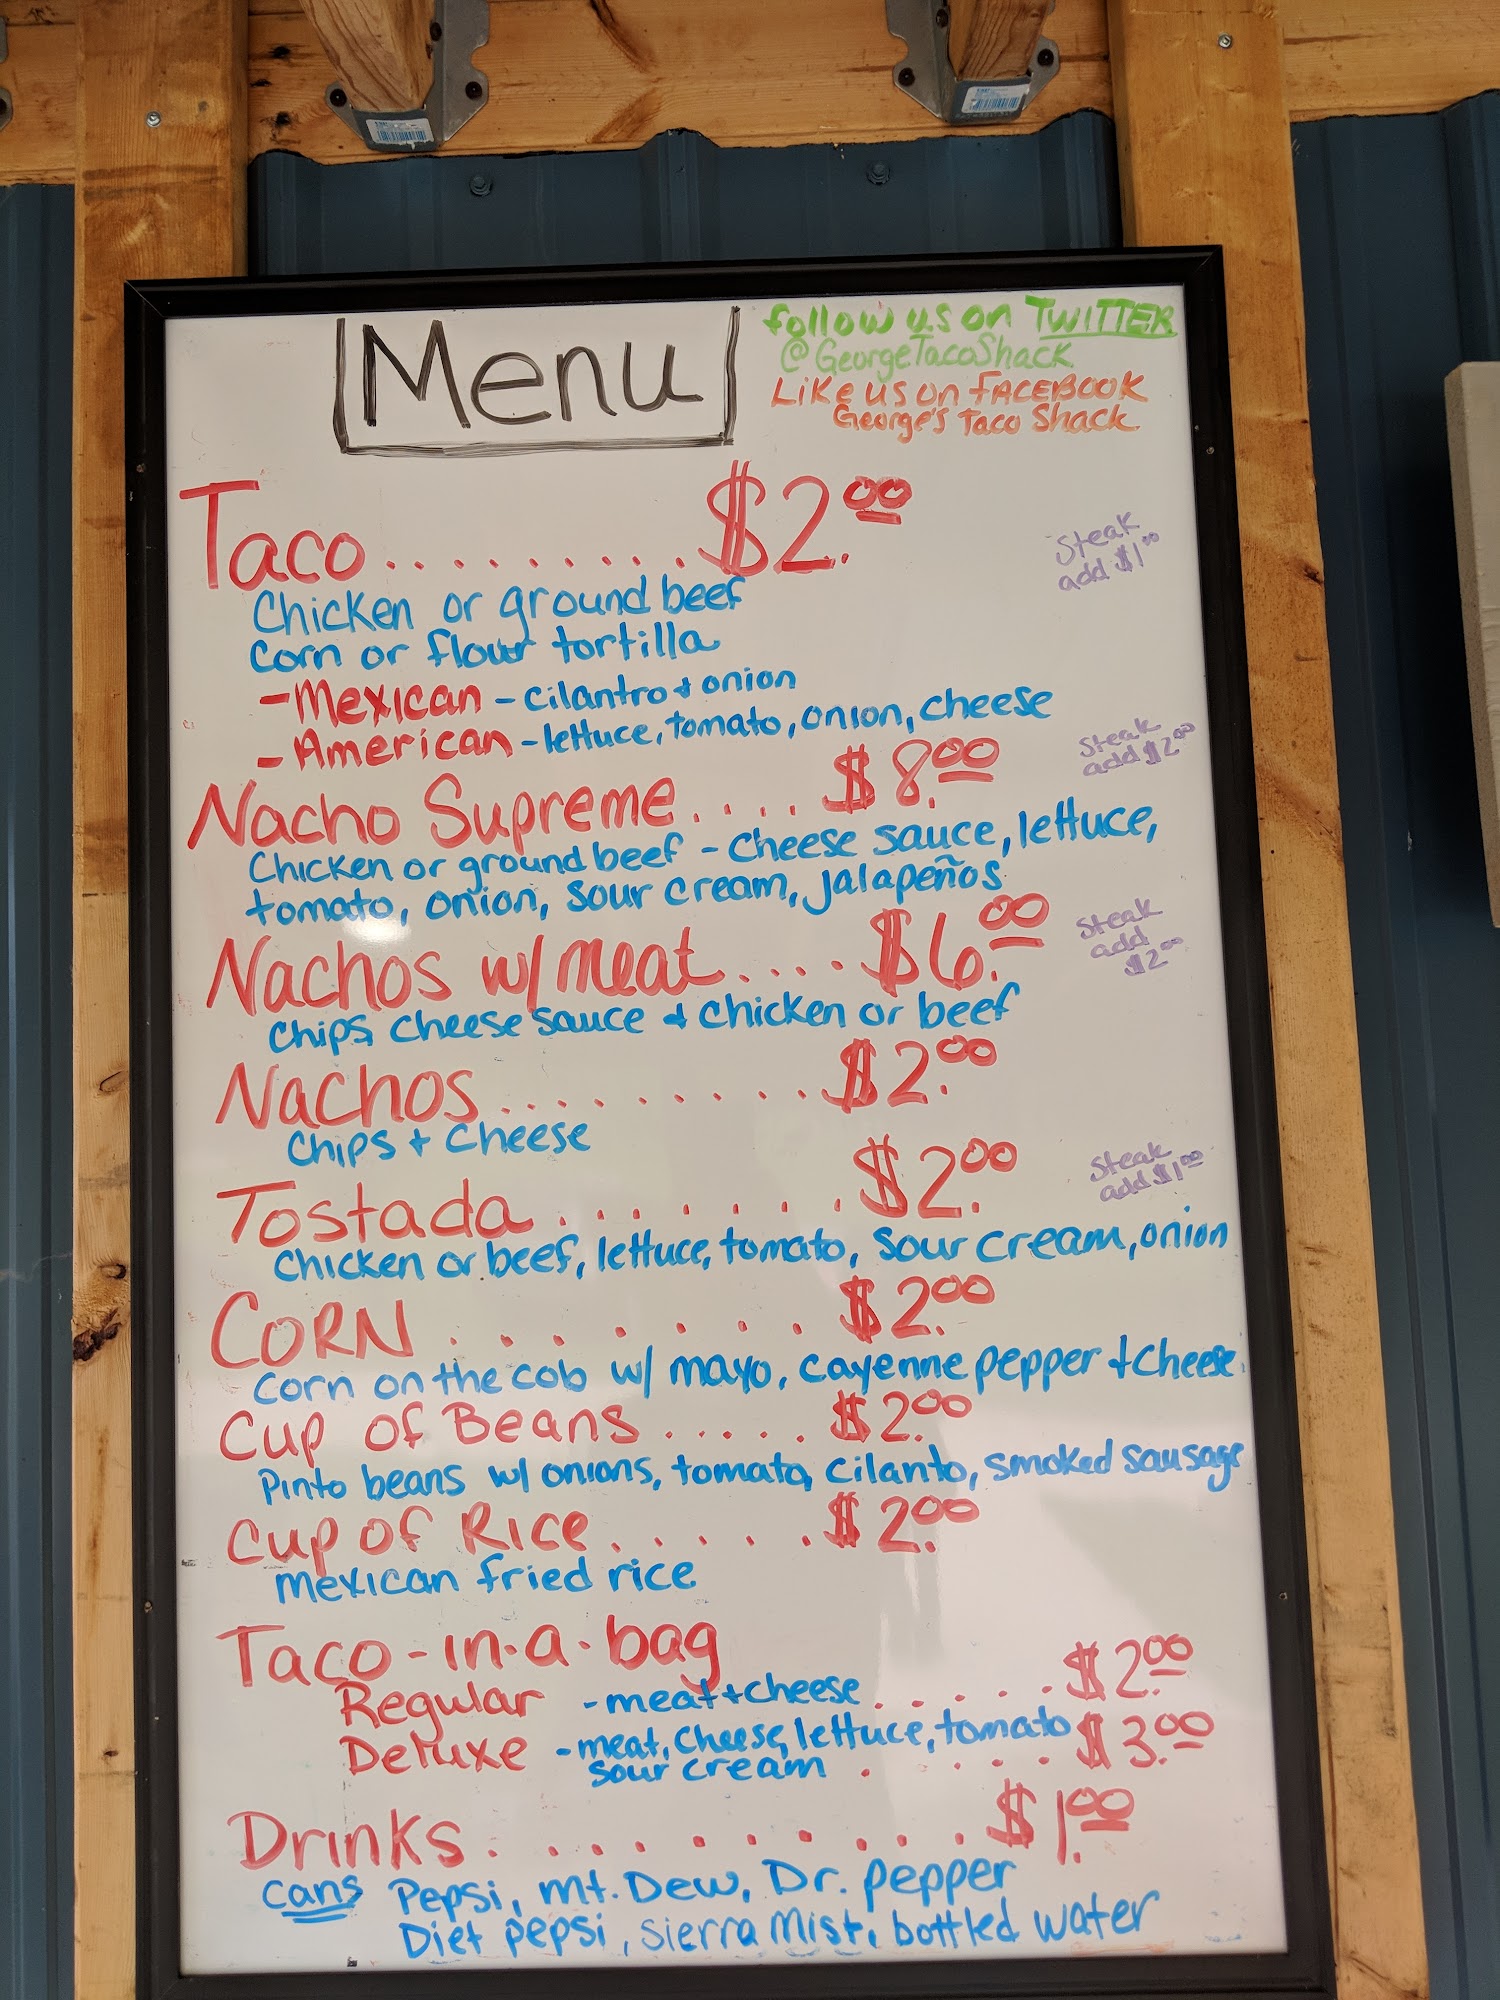 Menu
follow us on TWITTER
@GeorgeTacoShack
Like us on FACEBOOK
George's Taco Shack
Taco.........$2.00
Steak
add $1.00
Chicken or ground beef
Corn or flour tortilla
-Mexican - cilantro + onion
-American - lettuce, tomato, onion, cheese
Nacho Supreme....$8.00
Steak
add $2.00
Chicken or ground beef - cheese sauce, lettuce,
tomato, onion, sour cream, jalapeños
Nachos w/meat....$6.00
Steak
add
$2.00
Chips, cheese sauce + chicken or beef
Nachos.........$2.00
Chips + cheese
Tostada.......$2.00
Steak
add $1.00
Chicken or beef, lettuce, tomato, sour cream, onion
CORN.......$2.00
corn on the cob w/ mayo, cayenne pepper + cheese.
Cup of Beans.....$2.00
Pinto beans w/ onions, tomato, cilanto, smoked sausage
Cup of Rice.....$2.00
mexican fried rice
Taco-in-a-bag
Regular - meat + cheese.....$2.00
Deluxe - meat, cheese, lettuce, tomato
sour cream.....$3.00
Drinks.........$1.00
cans Pepsi, mt. Dew, Dr. pepper
Diet pepsi, sierra mist, bottled water